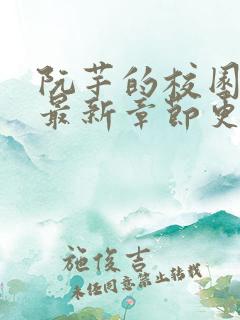 阮芋的校园
最新章节更
施俊吉
未经同意禁止转载